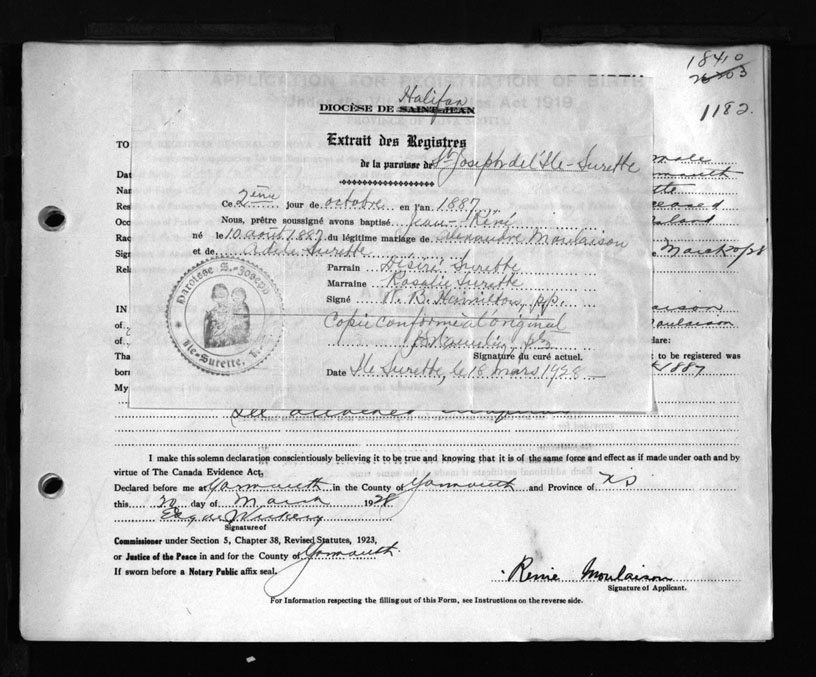 1840
26203
1182
APPLICATION FOR REGISTRATION OF BIRTH
Halifax
DIOCÈSE DE SAINT-JEAN
Extrait des Registres
de la paroisse de St Joseph de l'Ile-Surette
Ce 2ème jour de octobre en l'an. 1887
Nous, prêtre soussigné avons baptisé Jean-Réné
né le 10 août 1887 du légitime mariage de Moulaison
et de Adèle Surette
Parrain Désiré Surette
Marraine Rosalie Surette
Signé Hamilton, p.p.
Copie conforme à l'original
Signature du curé actuel.
Date Ile Surette, le 18 mars 1928
Paroisse S.-Joseph
Ile-Surette,
TO
Dat
Nam
Res
Occ
Rac
Sign
Rel
IN
of
of
Tha
born
My
male
lare:
t to be registered was
1887
See attached
I make this solemn declaration conscientiously believing it to be true and knowing that it is of the same force and effect as if made under oath and by
virtue of The Canada Evidence Act,
Declared before me at Yarmouth in the County of Yarmouth and Province of NS
this 20 day of March 1928
Signature of
Commissioner under Section 5, Chapter 38, Revised Statutes, 1923,
or Justice of the Peace in and for the County of Yarmouth
If sworn before a Notary Public affix seal.
Renie Moulaison
Signature of Applicant.
For Information respecting the filling out of this Form, see Instructions on the reverse side.